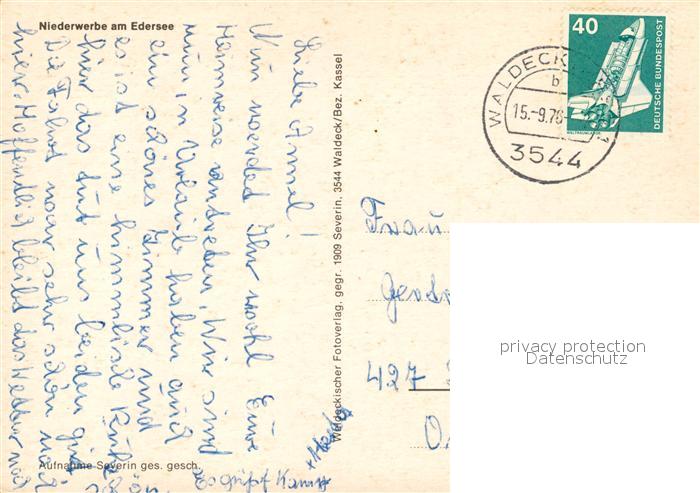 Niederwerbe am Edersee
Liebe Annel!
Nun werdet Ihr wohl Eure
Heimreise antreten. Wir sind
nun in Urlaub haben auch
ein schönes Zimmer und
es ist eine himmlische Ruhe
hier das tut uns beiden gut
Die Fahrt war sehr schön
hier. Hoffentlich bleibt das Wetter
Es grüßt
Aufnahme Severin ges. gesch.
Waldeckischer Fotoverlag, gegr. 1909 Severin, 3544 Waldeck/Bez. Kassel
40
DEUTSCHE BUNDESPOST
WELTRAUMLABOR
WALDECK
b
15.-9.76
3544
1
Frau
427
privacy protection
Datenschutz